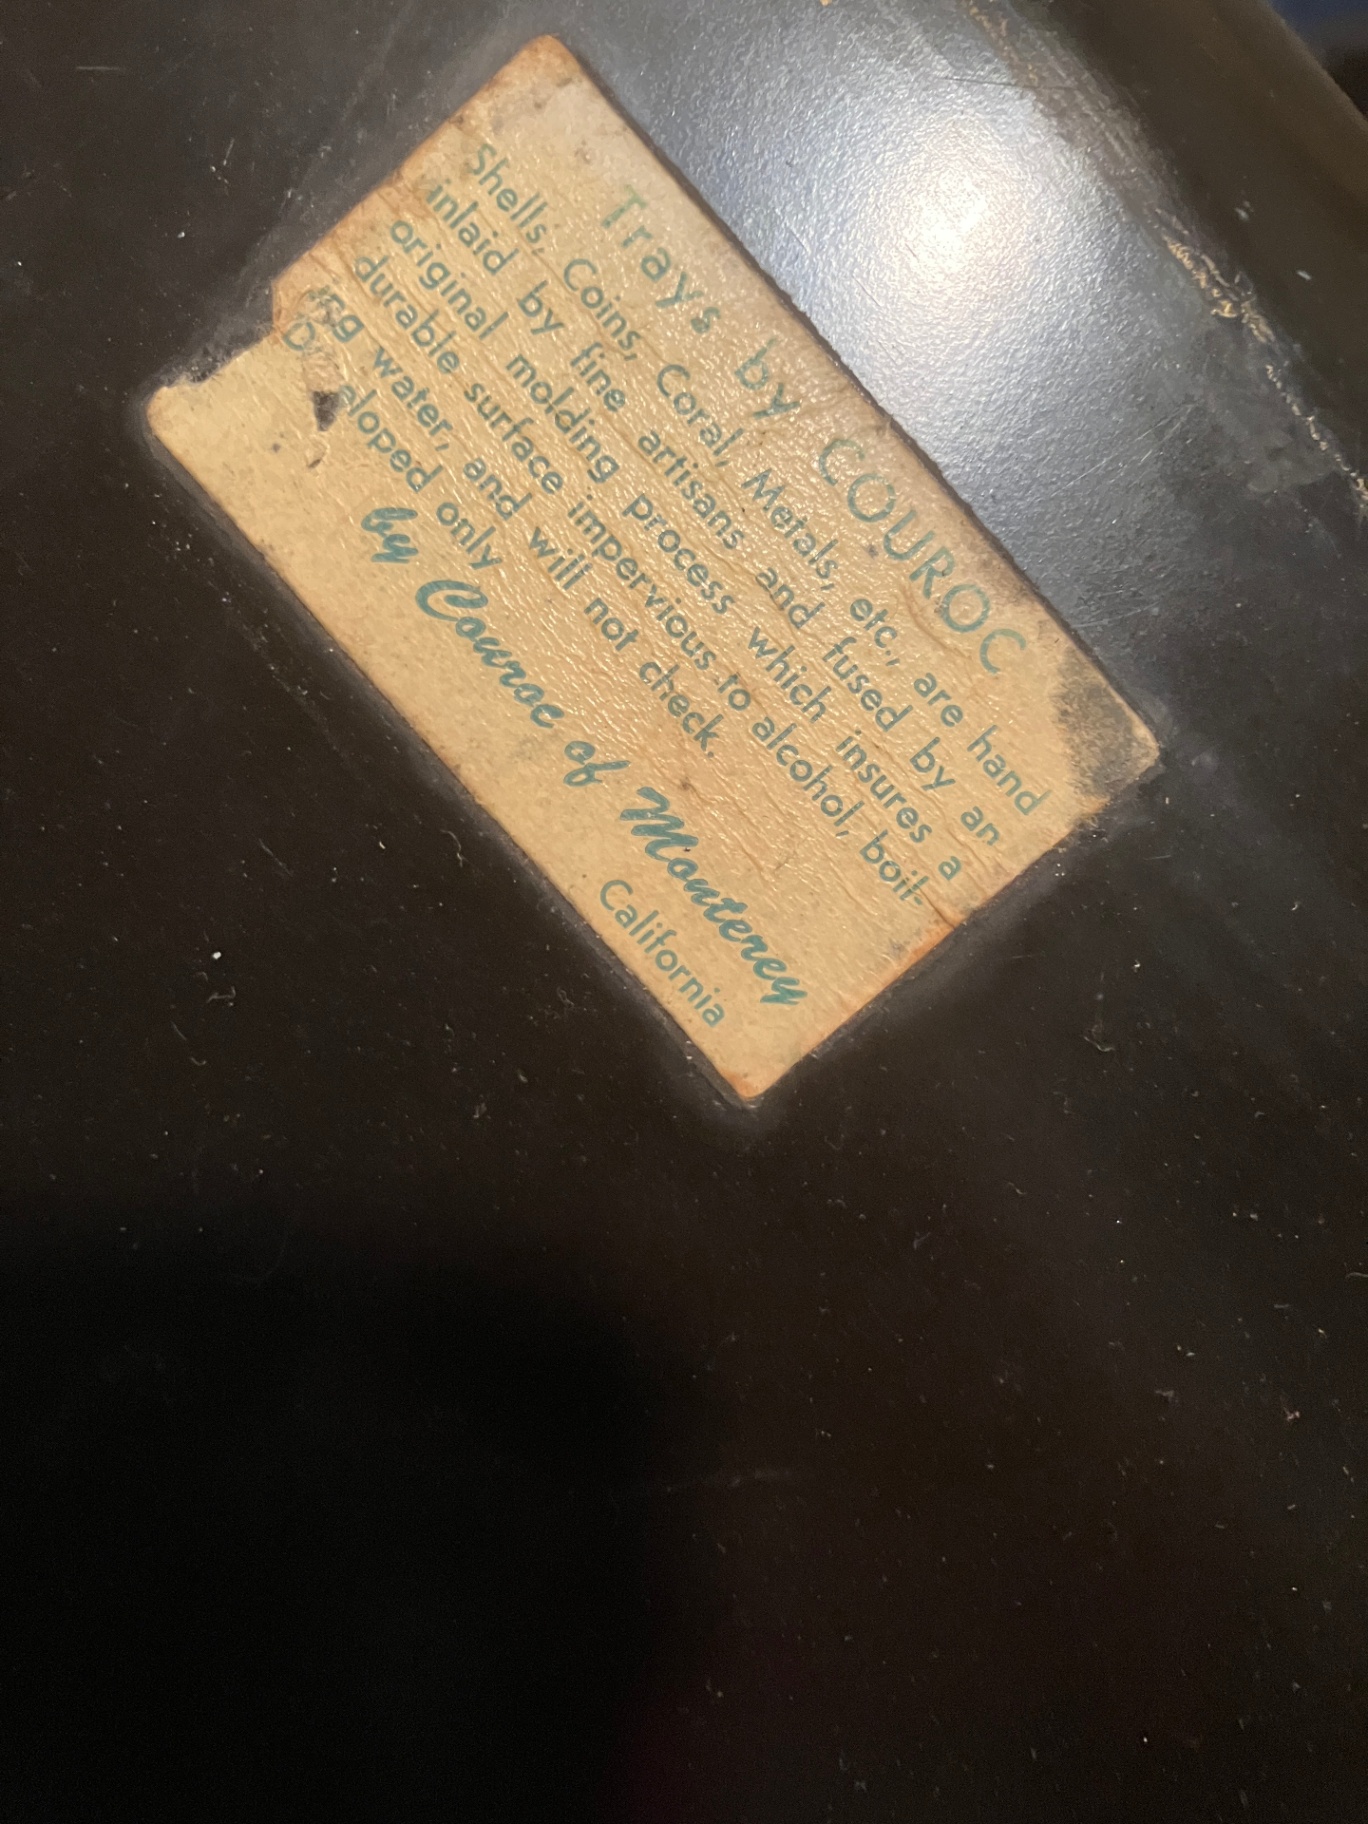 Trays by COUROC
Shells, Coins, Coral, Metals, etc., are hand
inlaid by fine artisans and fused by an
original molding process which insures a
durable surface impervious to alcohol, boil-
ing water, and will not check.
only
by Couroc of Monterey
California